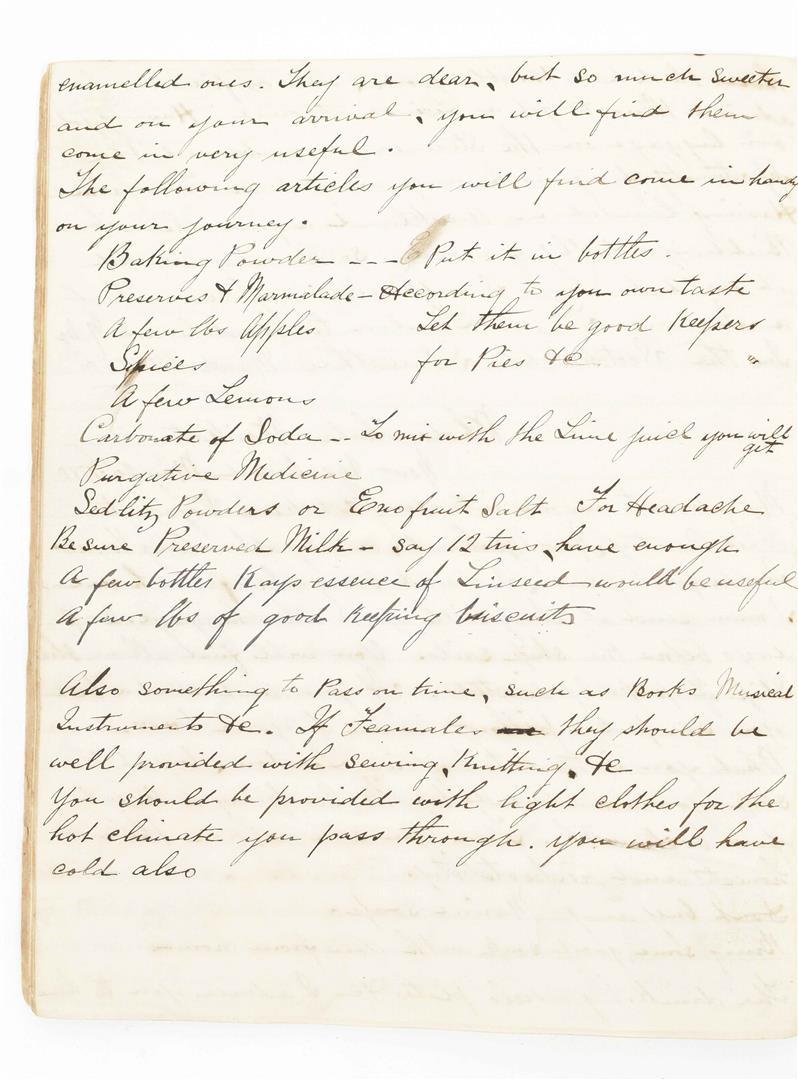 enamelled ones. They are dear, but so much sweeter
and on your arrival, you will find them
come in very useful.
The following articles you will find come in handy
on your journey.
Baking Powder --- Put it in bottles.
Preserves & Marmalade - According to you own taste
A few lbs Apples Let them be good Keepers
Spices for Pies &c "
A few Lemons
Carbonate of Soda -- To mix with the Lime juice you will get
Purgative Medicine
Sedlitz Powders or Eno fruit Salt For Headache
Be sure Preserved Milk - say 12 tins, have enough
A few bottles Kays essence of Linseed would be useful
A few lbs of good Keeping biscuits
Also something to Pass on time, such as Books Musical
Instruments &c. If Feamales they should be
well provided with sewing, Knitting, &c
You should be provided with light clothes for the
hot climate you pass through. you will have
cold also